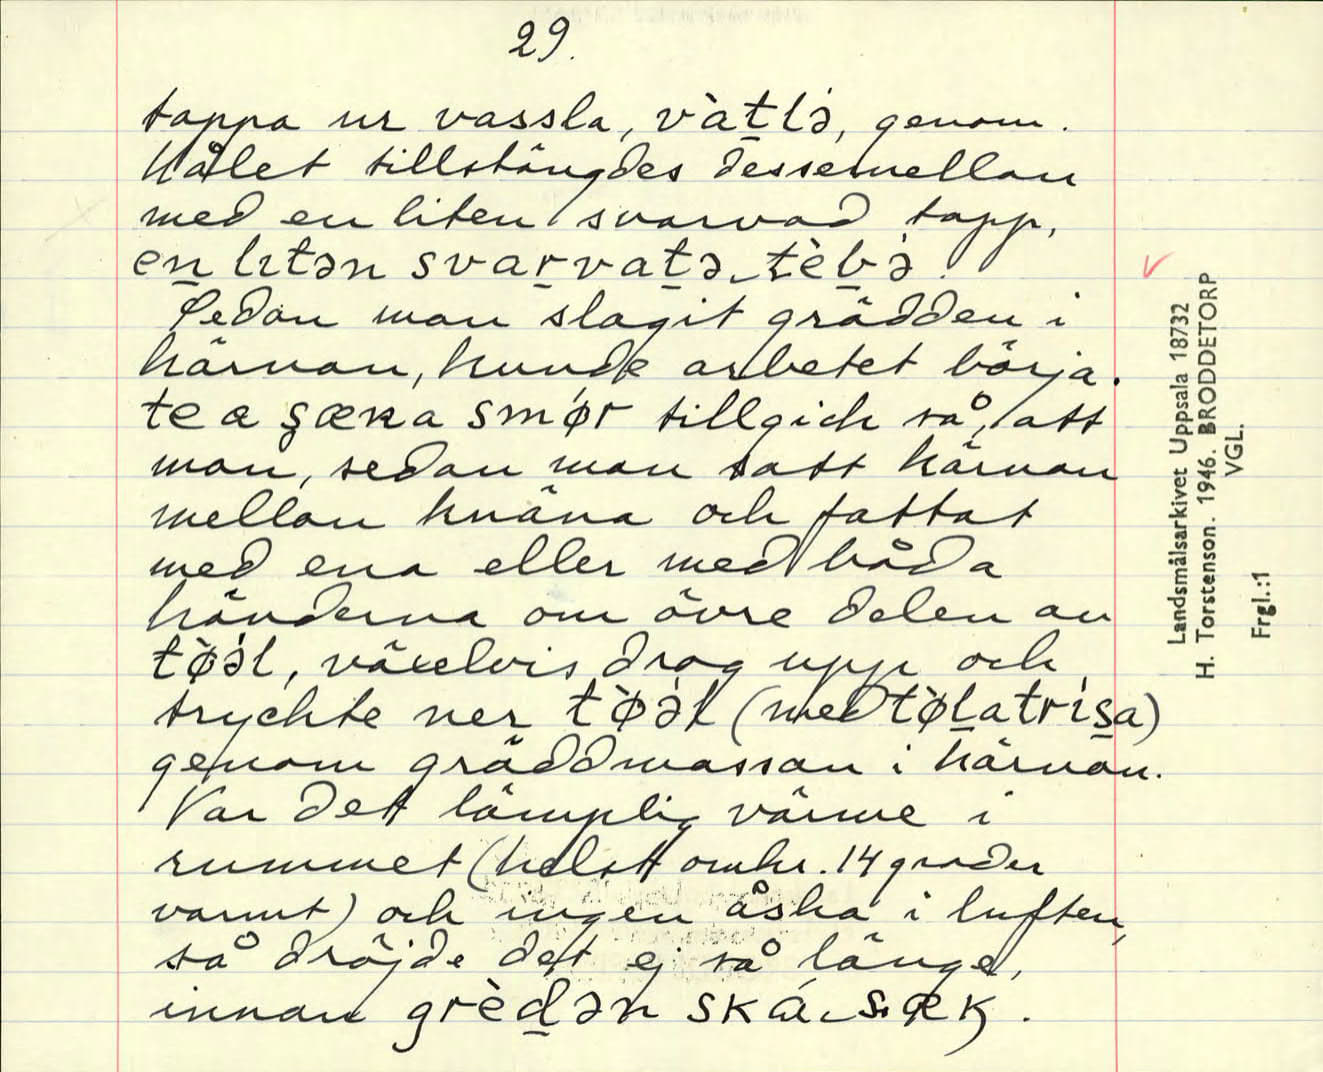 29.
tappa ur vassla, vàt̲lə́, genom.
Hålet tillstängdes dessemellan
med en liten svarvad tapp,
en̲ lıtən svar̲vat̲ə tèb̲ə́.
Sedan man slagit grädden i
kärnan, kunde arbetet börja.
te a şæna smør tillgick så, att
man, sedan man satt kärnan
mellan knäna och fattat
med ena eller med båda
händerna om övre delen av
tø̀ə́l, växelvis drog upp och
tryckte ner tø̀ə́l (med tø̀l̲atrís̲a)
genom gräddmassan i kärnan.
Var det lämplig värme i
rummet (helst omkr. 14 grader
varmt) och ingen åska i luften,
så dröjde det ej så länge,
innan grèd̲ən
Landsmålsarkivet Uppsala 18732
H. Torstenson. 1946. BRODDETORP
VGL.
Frgl.:1